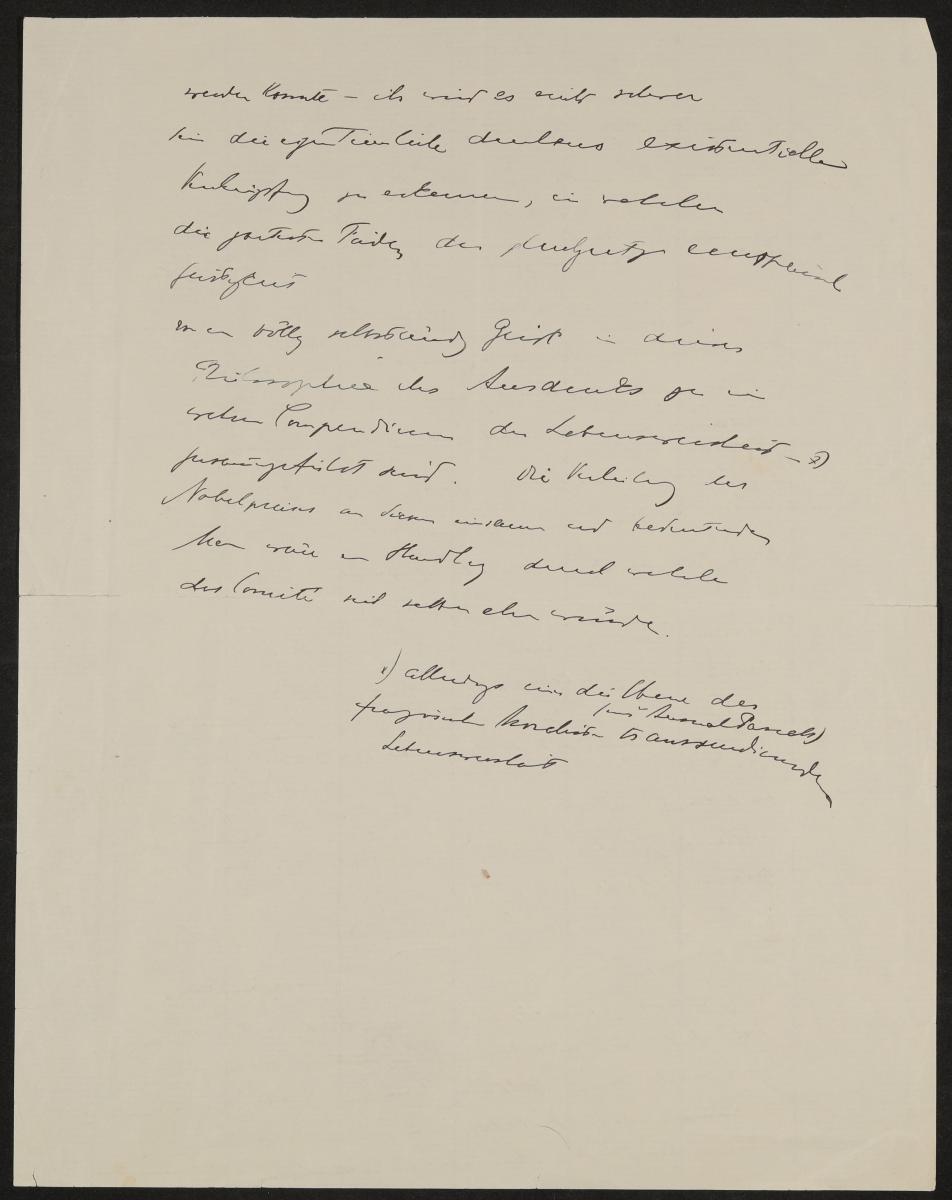 werden konnte – ihr wird es nicht schwer
sein die eigentümliche durchaus existentielle
Verknüpfung zu erkennen, in welcher
die zartesten Fäden der europäischen
Geistigkeit
von völlig selbständig Geist in dieser
Philosophie des Ausdrucks zu
Compendium der Lebensweisheit – x)
zusammengeführt sind. Die Verleihung des
Nobelpreises an diesen einsamen und bedeutenden
Mann wäre eine Handlung durch welche
das Comité sich selber ehren würde.
x) allerdings einer die Ebene des
(wie Pascals)
tragische transzendierenden
Lebensweisheit